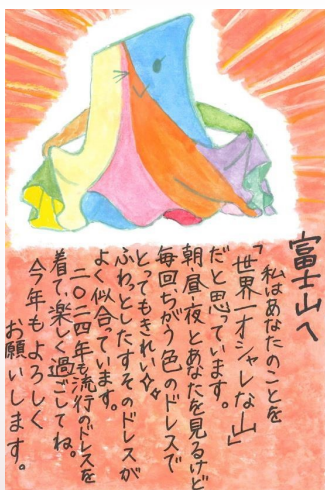 富士山へ
私はあなたのことを
「世界一オシャレな山」
だと思っています。
朝・昼・夜とあなたを見るけど
毎回ちがう色のドレスで
とってもきれい✧
ふわっとしたすそのドレスが
よく似合ています。
二〇二四年も流行のドレスを
着て、楽しく過ごしてね。
今年もよろしく
お願いします。